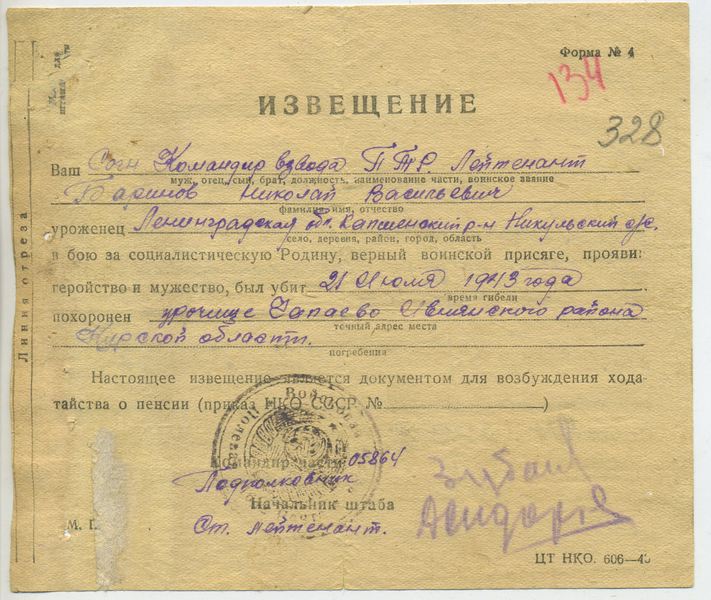 Форма № 4
134
ИЗВЕЩЕНИЕ
328
Ваш Сын Командир взвода ПТР Лейтенант
муж, отец, сын, брат, должность, наименование части, воинское звание
Баринов Николай Васильевич
фамилия, имя, отчество
уроженец Ленинградская обл. Капшенский р-н Никульский с/с.
село, деревня, район, город, область
в бою за социалистическую Родину, верный воинской присяге, прояви:
геройство и мужество, был убит 21 Июля 1943 года
время гибели
похоронен урочище Чапаево Ивнянского района
точный адрес места
Курской области.
погребения
Линия отреза
Настоящее извещение является документом для возбуждения хода-
тайства о пенсии (приказ НКО СССР № )
Командир части 05864
Подполковник
Начальник штаба
Ст. лейтенант.
М. П.
ЦТ НКО. 606—43